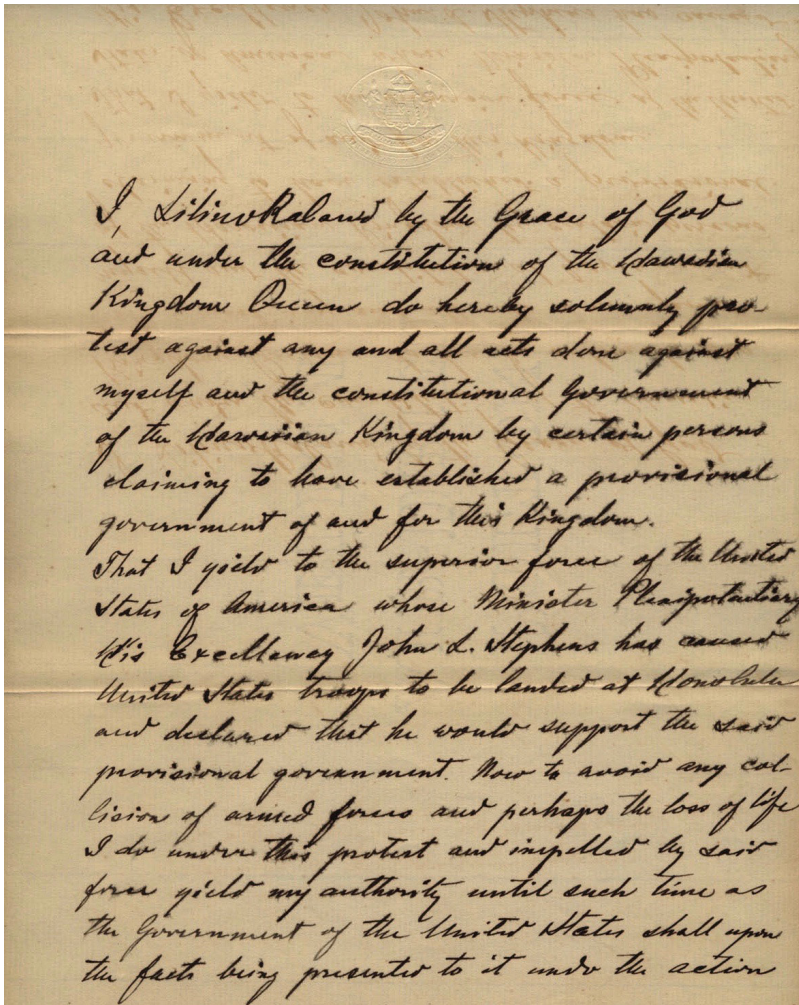 I, Liliuokalani by the Grace of God
and under the constitution of the Hawaiian
Kingdom Queen do hereby solemnly pro-
test against any and all acts done against
myself and the constitutional Government
of the Hawaiian Kingdom by certain persons
claiming to have established a provisional
government of and for this Kingdom.
That I yield to the superior force of the United
States of America whose Minister Plenipotentiary
His Excellency John L. Stephens has caused
United States troops to be landed at Honolulu
and declared that he would support the said
provisional government. Now to avoid any col-
lision of armed forces and perhaps the loss of life
I do under this protest and impelled by said
force yield my authority until such time as
the Government of the United States shall upon
the facts being presented to it undo the action